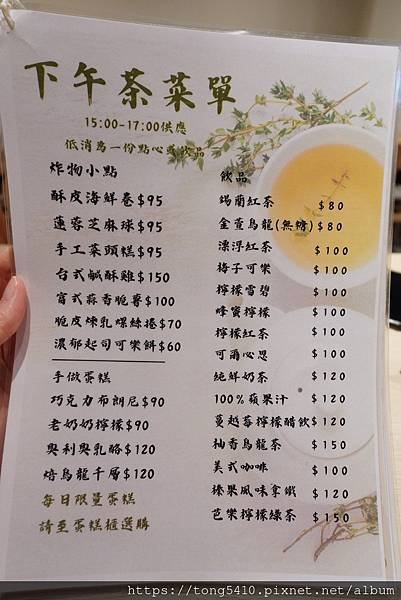 下午茶菜單
15:00-17:00供應
低消為一份點心或飲品
炸物小點
酥皮海鮮卷$95
蓮蓉芝麻球$95
手工菜頭糕$95
台式鹹酥雞$150
宮式蒜香脆薯$100
脆皮煉乳螺絲捲$70
濃郁起司可樂餅$60
手做蛋糕
巧克力布朗尼$90
老奶奶檸檬$90
奧利奧乳酪$120
焙烏龍千層$120
每日限量蛋糕
請至蛋糕櫃選購
飲品
錫蘭紅茶 $80
金萱烏龍(無糖)$80
漂浮紅茶 $100
梅子可樂 $100
檸檬雪碧 $100
蜂蜜檸檬 $100
檸檬紅茶 $100
可爾必思 $100
純鮮奶茶 $120
100%蘋果汁 $120
蔓越莓檸檬醋飲$120
柚香烏龍茶 $150
美式咖啡 $100
榛果風味拿鐵 $120
芭樂檸檬綠茶 $150
https://tong5410.pixnet.net/album